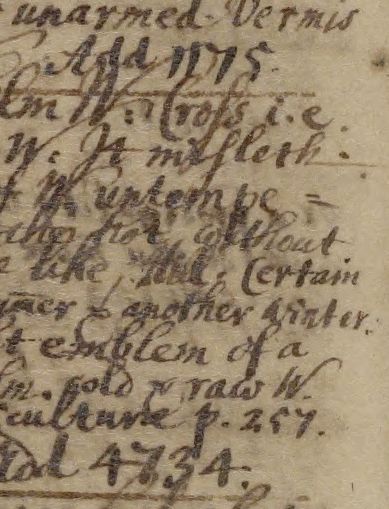 unarmed. Vermis
Add 1175.
W: Cross i.e.
W: It misleth.
W untempe =
without
like, Certain
mer & another winter.
emblem of a
cold & raw W.
culture p. 257.
4734.